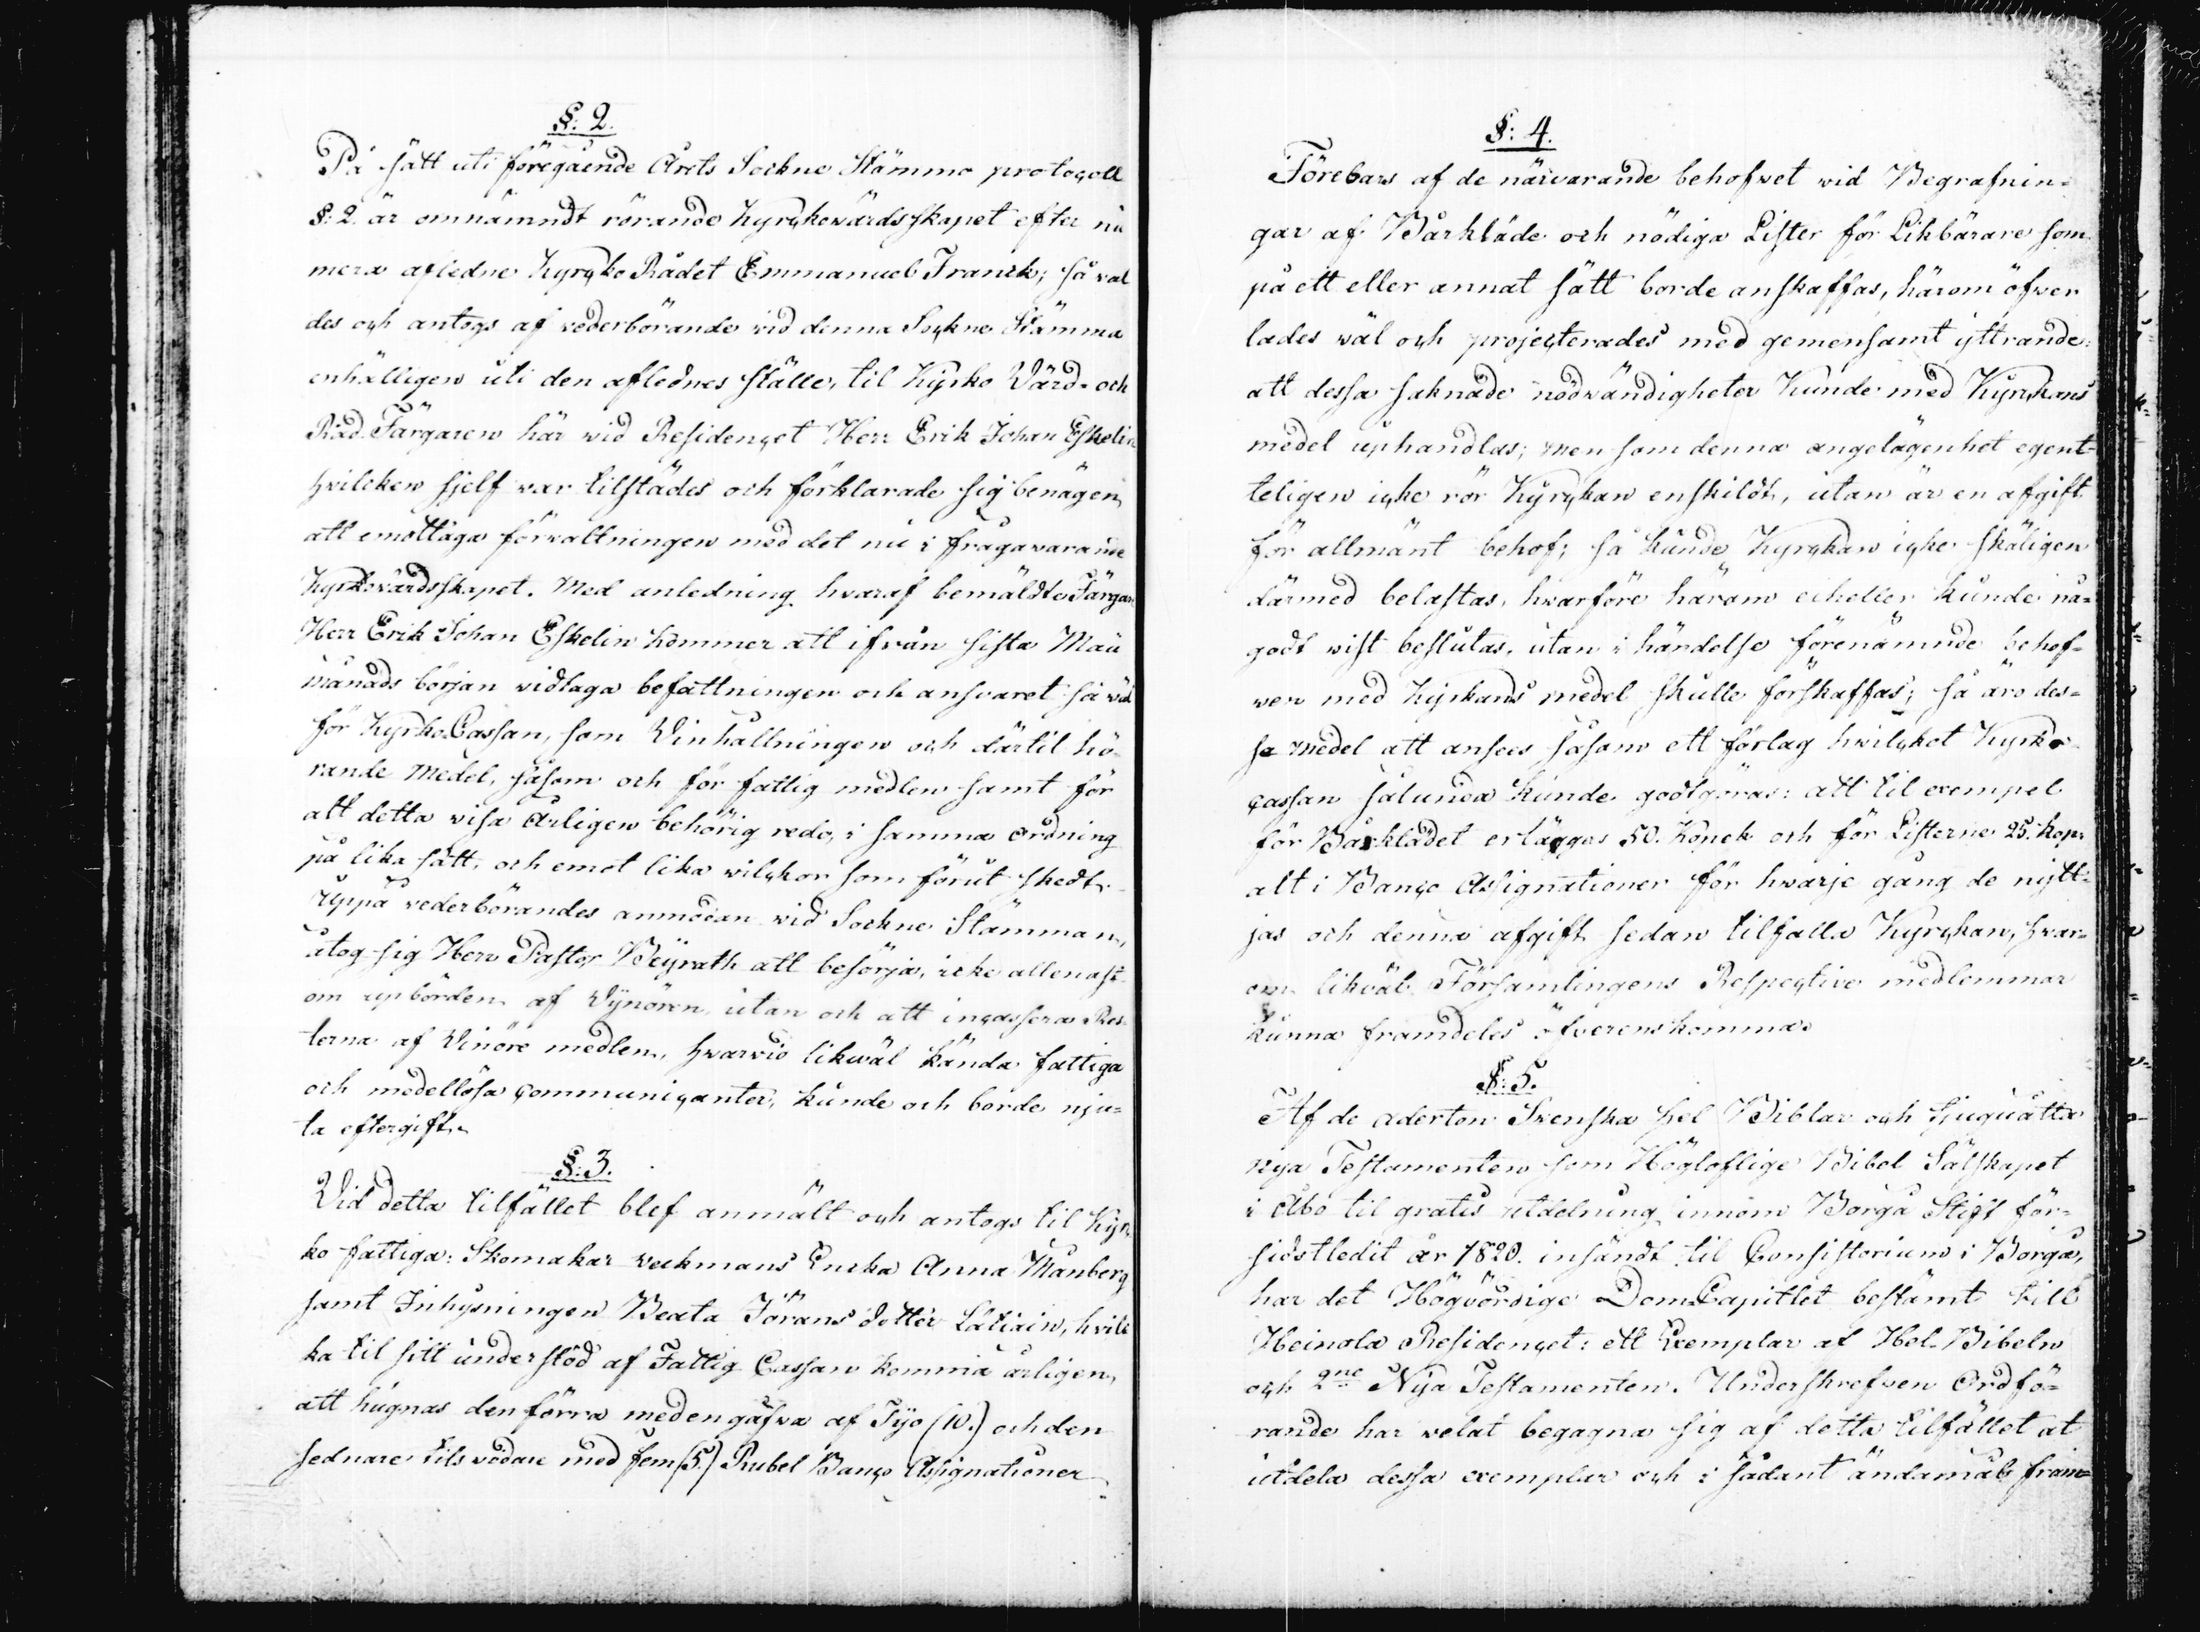 §: 2.
På sätt uti föregående Årets Sockne Stämmo protocoll
§: 2. är omnämndt rörande Kyrckovärdsskapet efter nu
mera afledne Kyrcko Rådet Emmanuel Franck; så val
des och antogs af vederbörande vid denna Sockne Stämma
enhälligen uti den aflednes ställe, til Kyrko Värd- och
Råd. Färgaren här vid Residencet Herr Erik Johan Eskelin
hvilcken sjelf var tilstädes och förklarade sig benägen
att emottaga förvaltningen med det nu i fråga varande
Kyrkovärdsskapet. Med anledning hvaraf bemäldte Färgar
Herr Erik Johan Eskelin kommer att ifrån sista Maii
månads början vidtaga befattningen och ansvaret så väl
för Kyrko Cassan, som Vinhållningen och därtil hö-
rande Medel, såsom och för fattig medlen samt för
alt detta visa Årligen behörig redo, i samma ordning
på lika sätt, och emot lika vilckor som förut skedt.
Uppå vederbörandes anmodan vid Sockne Stämman,
åtog sig Herr Pastor Weijrath att besörja, icke allenast
om upbörden af Vynören, utan och att incassera Res-
terna af Vinöre medlen, hvarvid likväl kända fattiga
och medellösa Communicanter, kunde och borde nju-
ta eftergift.
§: 3.
Vid detta tilfället blef anmält och antogs til Kyr-
ko fattiga: Skomakar Weckmans Encka Anna Manberg
samt Inhysningen Beata Jörans dotter Latiain, hvilc
ka til sitt understöd af Fattig Cassan komma årligen,
att hugnas den förra med en gåfva af Tijo (10.) och den
sednare tils vidare med fem (5.) Rubel Banco Assignationer
§: 4.
Förebars af de närvarande behofvet vid Begrafnin-
gar af Bårkläde och nödiga Lister för Likbärare som
på ett eller annat sätt borde anskaffas, härom öfver
lades väl och projecterades med gemensamt yttrande:
att dessa saknade nödvändigheter kunde med Kyrckans
medel uphandlas; men som denna angelägenhet egent-
teligen icke rör Kyrckan enskildt, utan är en afgift
för allmänt behof; så kunde Kyrckan icke skäligen
därmed belastas, hvarföre härom eiheller kunde nå-
godt vist beslutas, utan i händelse förenämnde behof-
ven med Kyrkans medel skulle förskaffas; så äro des-
sa medel att anses såsom ett förlag hvilcket Kyrko-
cassan sålunda kunde godtgöras: att til exempel
för Bårklädet erlägges 50. Kopek och för Listerne 25. kop:
alt i Banco Assignationer för hvarje gång de nytt-
jas och denna afgift sedan tilfalla Kyrckan, hvar-
om likväl Församlingens Respective medlemmar
kunna framdeles öfverenskomma.
§: 5.
Af de aderton Svenska hel Biblar och tjuguåtta
nya Testamenten som Högloflige Bibel Sälskapet
i Åbo til gratis utdelning innom Borgå Stift för-
sidstledit år 1820. insändt til Consistorium i Borgå,
har det Högvördige DomCapitlet bestämt till
Heinola Residencet: ett Exemplar af Hel. Bibeln
och 2ne Nya Testamenten. Underskrefven Ordfö-
rande har velat begagna sig af detta tilfället at
utdela dessa exemplar och i sådant ändamål fram-